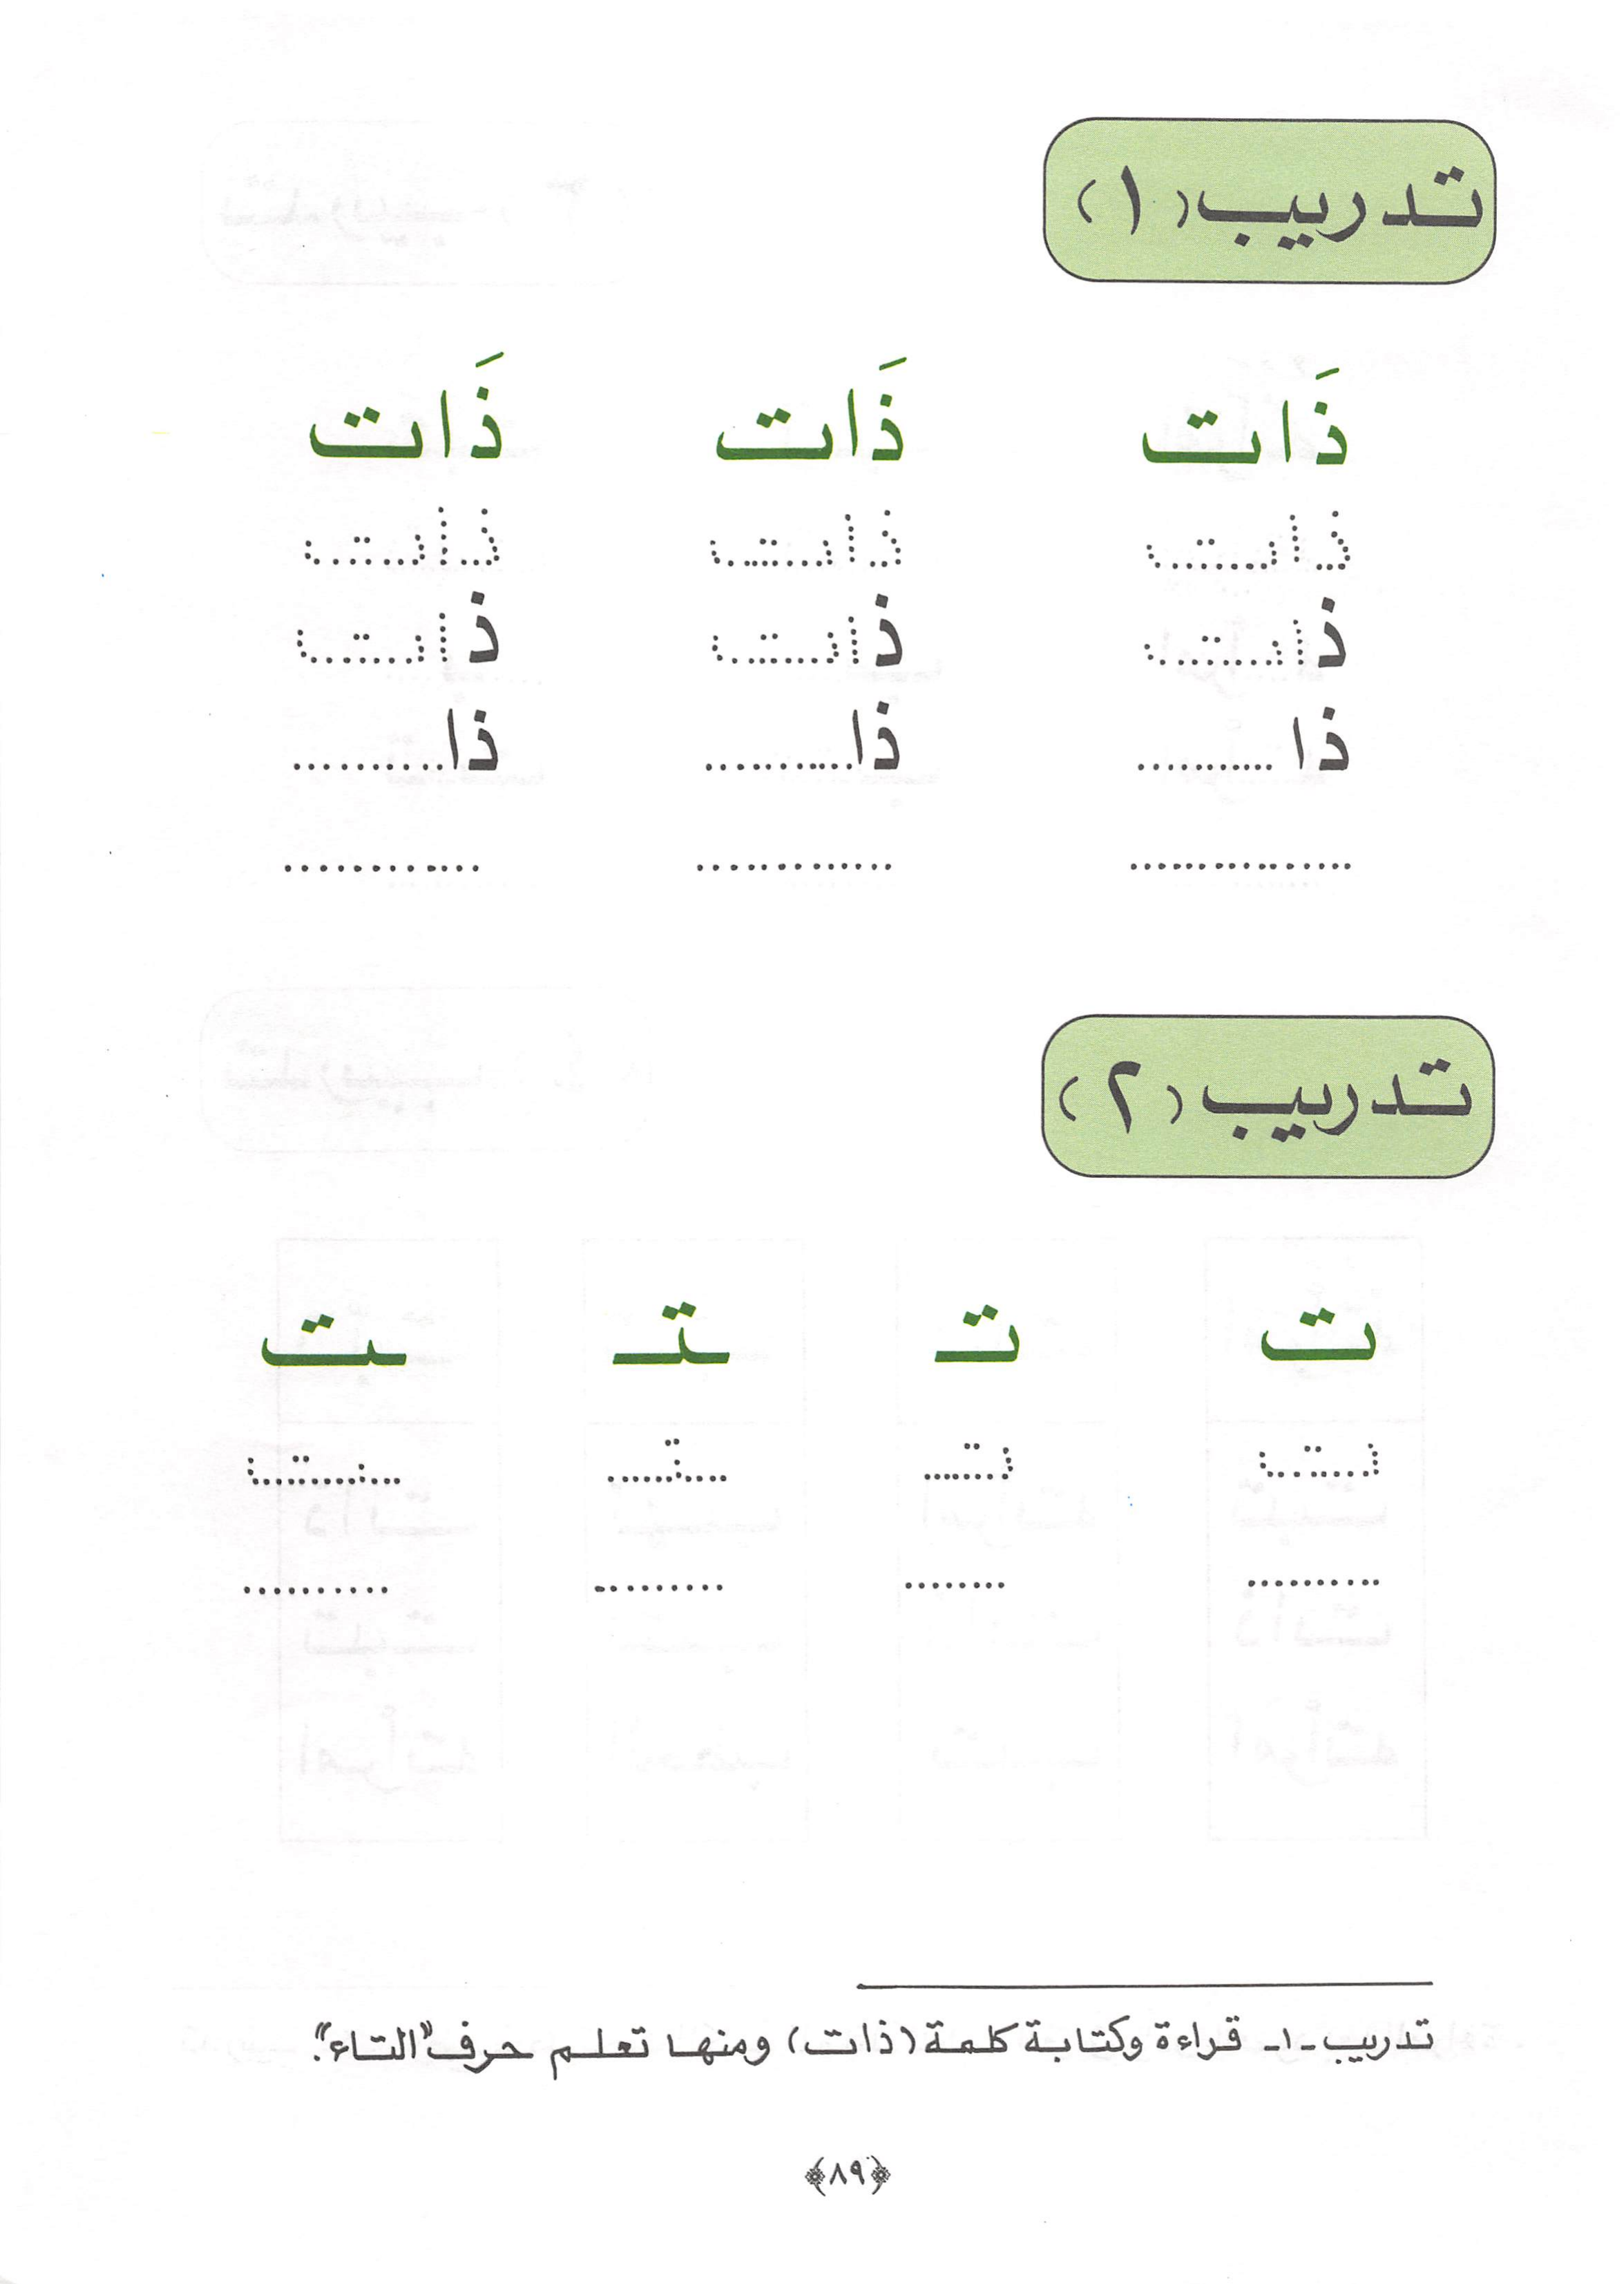 تدريب (١)
ذَات ذَات ذَات
ذات ذات ذات
ذات ذات ذات
ذا.......... ذا.......... ذا..........
............ ............ ............
تدريب (٢)
ت تـ ـتـ ـت
ت تـ ـتـ ـت
.......... ........ .......... ..........
تدريب -١- قراءة وكتابة كلمة (ذات) ومنها تعلم حرف "التاء".
﴿٨٩﴾